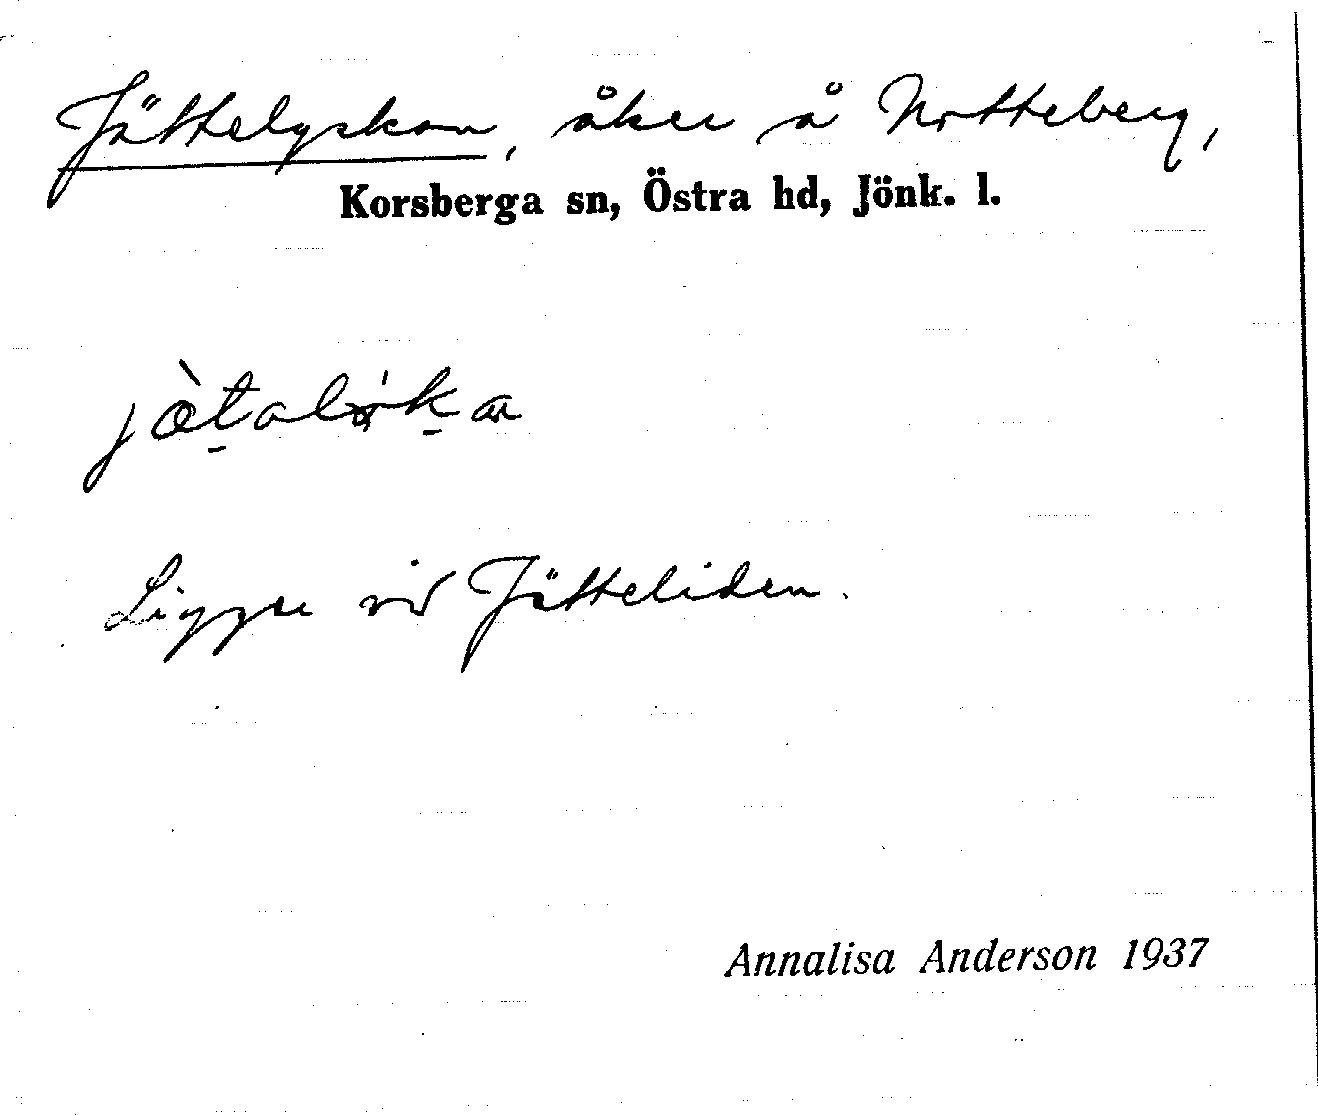 Jättelyckan, åker å Notteberg,
Korsberga sn, Östra hd, Jönk. l.
Ligger vid Jätteliden.
Annalisa Anderson 1937